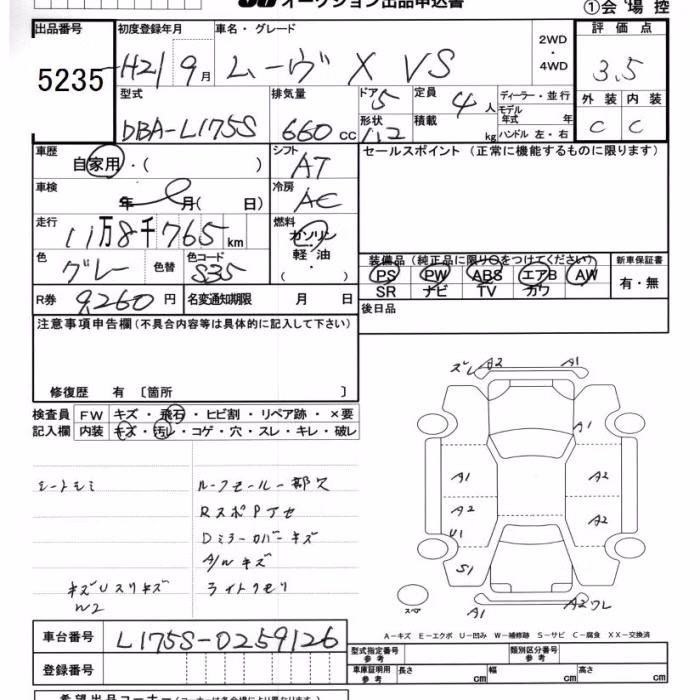 オークション出品申込書
①会場控
出品番号
5235
初度登録年月
H21 9月
車名・グレード
ムーヴ X VS
2WD
・
4WD
評価点
3.5
型式
DBA-L175S
排気量
660cc
ドア
5
形状
定員
4人
積載
kg
ディーラー・並行
モデル
年式 年
ハンドル 左・右
外装 内装
C C
車歴
自家用・( )
シフト
AT
セールスポイント(正常に機能するものに限ります)
車検
年 月( 日)
冷房
AC
走行
11万8千765km
燃料
ガソリン
軽油
・( )
色
グレー
色替
色コード
S35
装備品(純正品に限り○をつけてください)
新車保証書
PS PW ABS エアB AW
SR ナビ TV カワ
有・無
R券
9,260円
名変通知期限 月 日
後日品
注意事項申告欄(不具合内容等は具体的に記入して下さい)
修復歴 有〔箇所 〕
検査員
記入欄
FW キズ・飛石・ヒビ割・リペア跡・×要
内装 キズ・汚レ・コゲ・穴・スレ・キレ・破レ
シートシミ
RスポPTセ
Dミラーカバーキズ
A/Wキズ
ライトクモリ
キズUスリキズ
W2
ズレ A2 A1
A1
A1 A2
A2 A2
U1
S1
スペア
A1
A2ワレ
A-キズ E-エクボ U-凹み W-補修跡 S-サビ C-腐食 XX-交換済
車台番号
L175S-0259126
型式指定番号
参考
類別区分番号
参考
車庫証明用
参考
長さ cm
幅 cm
高さ cm
登録番号
希望出品コーナー